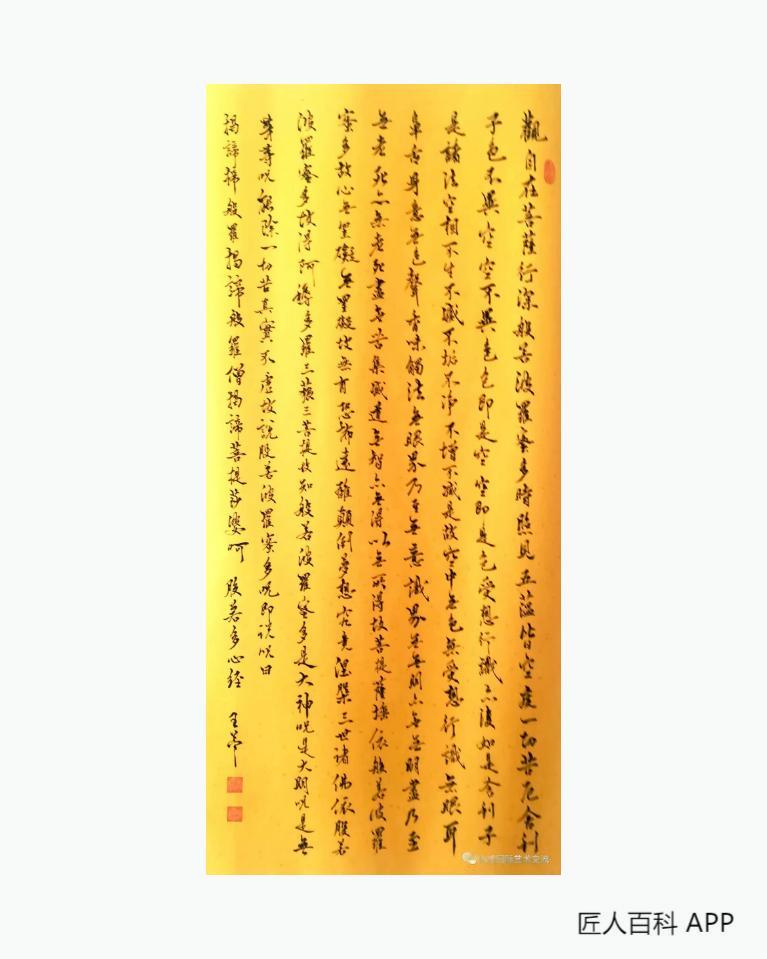 觀自在菩薩行深般若波羅蜜多時照見五蘊皆空度一切苦厄舍利
子色不異空空不異色色即是空空即是色受想行識亦復如是舍利子
是諸法空相不生不滅不垢不淨不增不減是故空中無色無受想行識無眼耳
鼻舌身意無色聲香味觸法無眼界乃至無意識界無無明亦無無明盡乃至
無老死亦無老死盡無苦集滅道無智亦無得以無所得故菩提薩埵依般若波羅
蜜多故心無罣礙無罣礙故無有恐怖遠離顛倒夢想究竟涅槃三世諸佛依般若
波羅蜜多故得阿耨多羅三藐三菩提故知般若波羅蜜多是大神呪是大明呪是無
等等呪能除一切苦真實不虛故說般若波羅蜜多呪即說呪曰
揭諦揭般羅揭諦般羅僧揭諦菩提莎婆呵 般若多心経 王
国际艺术交流
匠人百科 APP